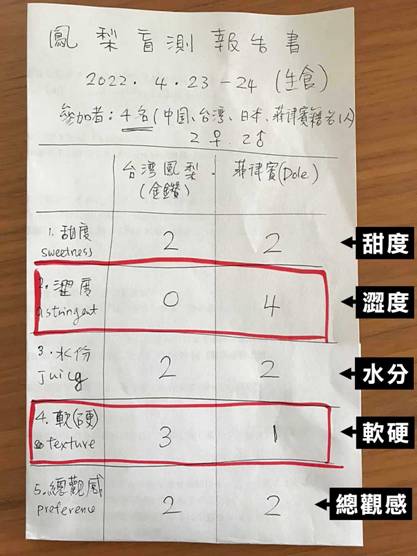 鳳梨盲測報告書
2022. 4. 23-24 (生食)
參加者: 4名(中国、台湾、日本、菲律賓籍各1人)
2♀ 2♂
台湾鳳梨(金鑽) 菲律賓(Dole)
1. 甜度 sweetness 2 2 甜度
2. 澀度 astringent 0 4 澀度
3. 水份 juicy 2 2 水分
4. 軟(硬) texture 3 1 軟硬
5. 總觀感 preference 2 2 總觀感